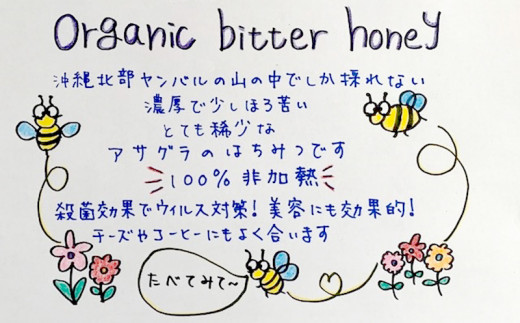 Organic bitter honey
沖縄北部ヤンバルの山の中でしか採れない
濃厚で少しほろ苦い
とても稀少な
アサグラのはちみつです
100%非加熱
殺菌効果でウイルス対策!美容にも効果的!
チーズやコーヒーにもよく合います
たべてみて〜